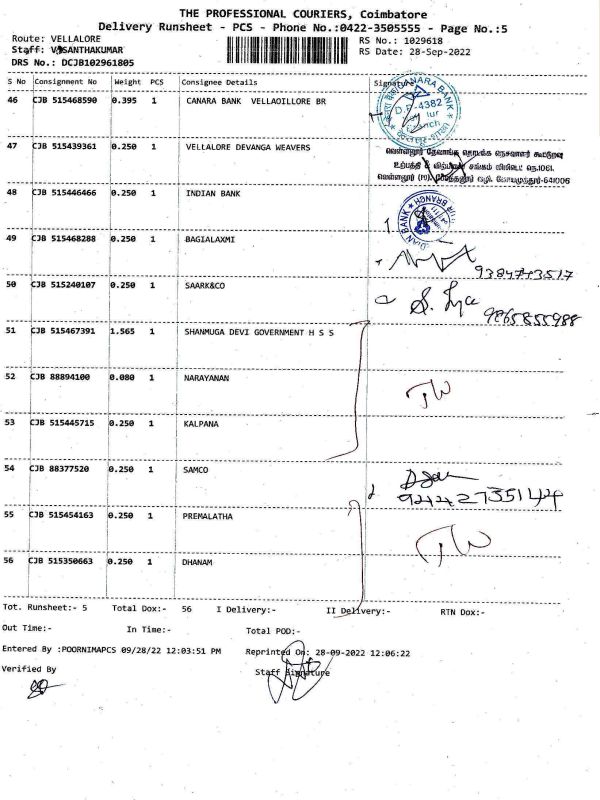 THE PROFESSIONAL COURIERS, Coimbatore
Delivery Runsheet - PCS - Phone No.:0422-3505555 - Page No.:5
Route: VELLALORE RS No.: 1029618
Staff: VASANTHAKUMAR RS Date: 28-Sep-2022
DRS No.: DCJB102961805
S No Consignment No Weight PCS Consignee Details Signature
46 CJB 515468590 0.395 1 CANARA BANK VELLAOILLORE BR
CANARA BANK
D.P-4382
Branch
47 CJB 515439361 0.250 1 VELLALORE DEVANGA WEAVERS
வெள்ளலூர் தேவாங்க நெசவாளர் கூட்டுறவு
உற்பத்தி & விற்பனை சங்கம் லிமிடெட் நெ.1061.
வெள்ளலூர் வழி, கோயமுத்தூர்-641006
48 CJB 515446466 0.250 1 INDIAN BANK
BANK BRANCH
49 CJB 515468288 0.250 1 BAGIALAXMI
50 CJB 515240107 0.250 1 SAARK&CO
9865855988
51 CJB 515467391 1.565 1 SHANMUGA DEVI GOVERNMENT H S S
52 CJB 88894100 0.080 1 NARAYANAN
TW
53 CJB 515445715 0.250 1 KALPANA
54 CJB 88377520 0.250 1 SAMCO
9442735144
55 CJB 515454163 0.250 1 PREMALATHA
TW
56 CJB 515350663 0.250 1 DHANAM
Tot. Runsheet:- 5 Total Dox:- 56 I Delivery:- II Delivery:- RTN Dox:-
Out Time:- In Time:- Total POD:-
Entered By :POORNIMAPCS 09/28/22 12:03:51 PM Reprinted On: 28-09-2022 12:06:22
Verified By Staff Signature